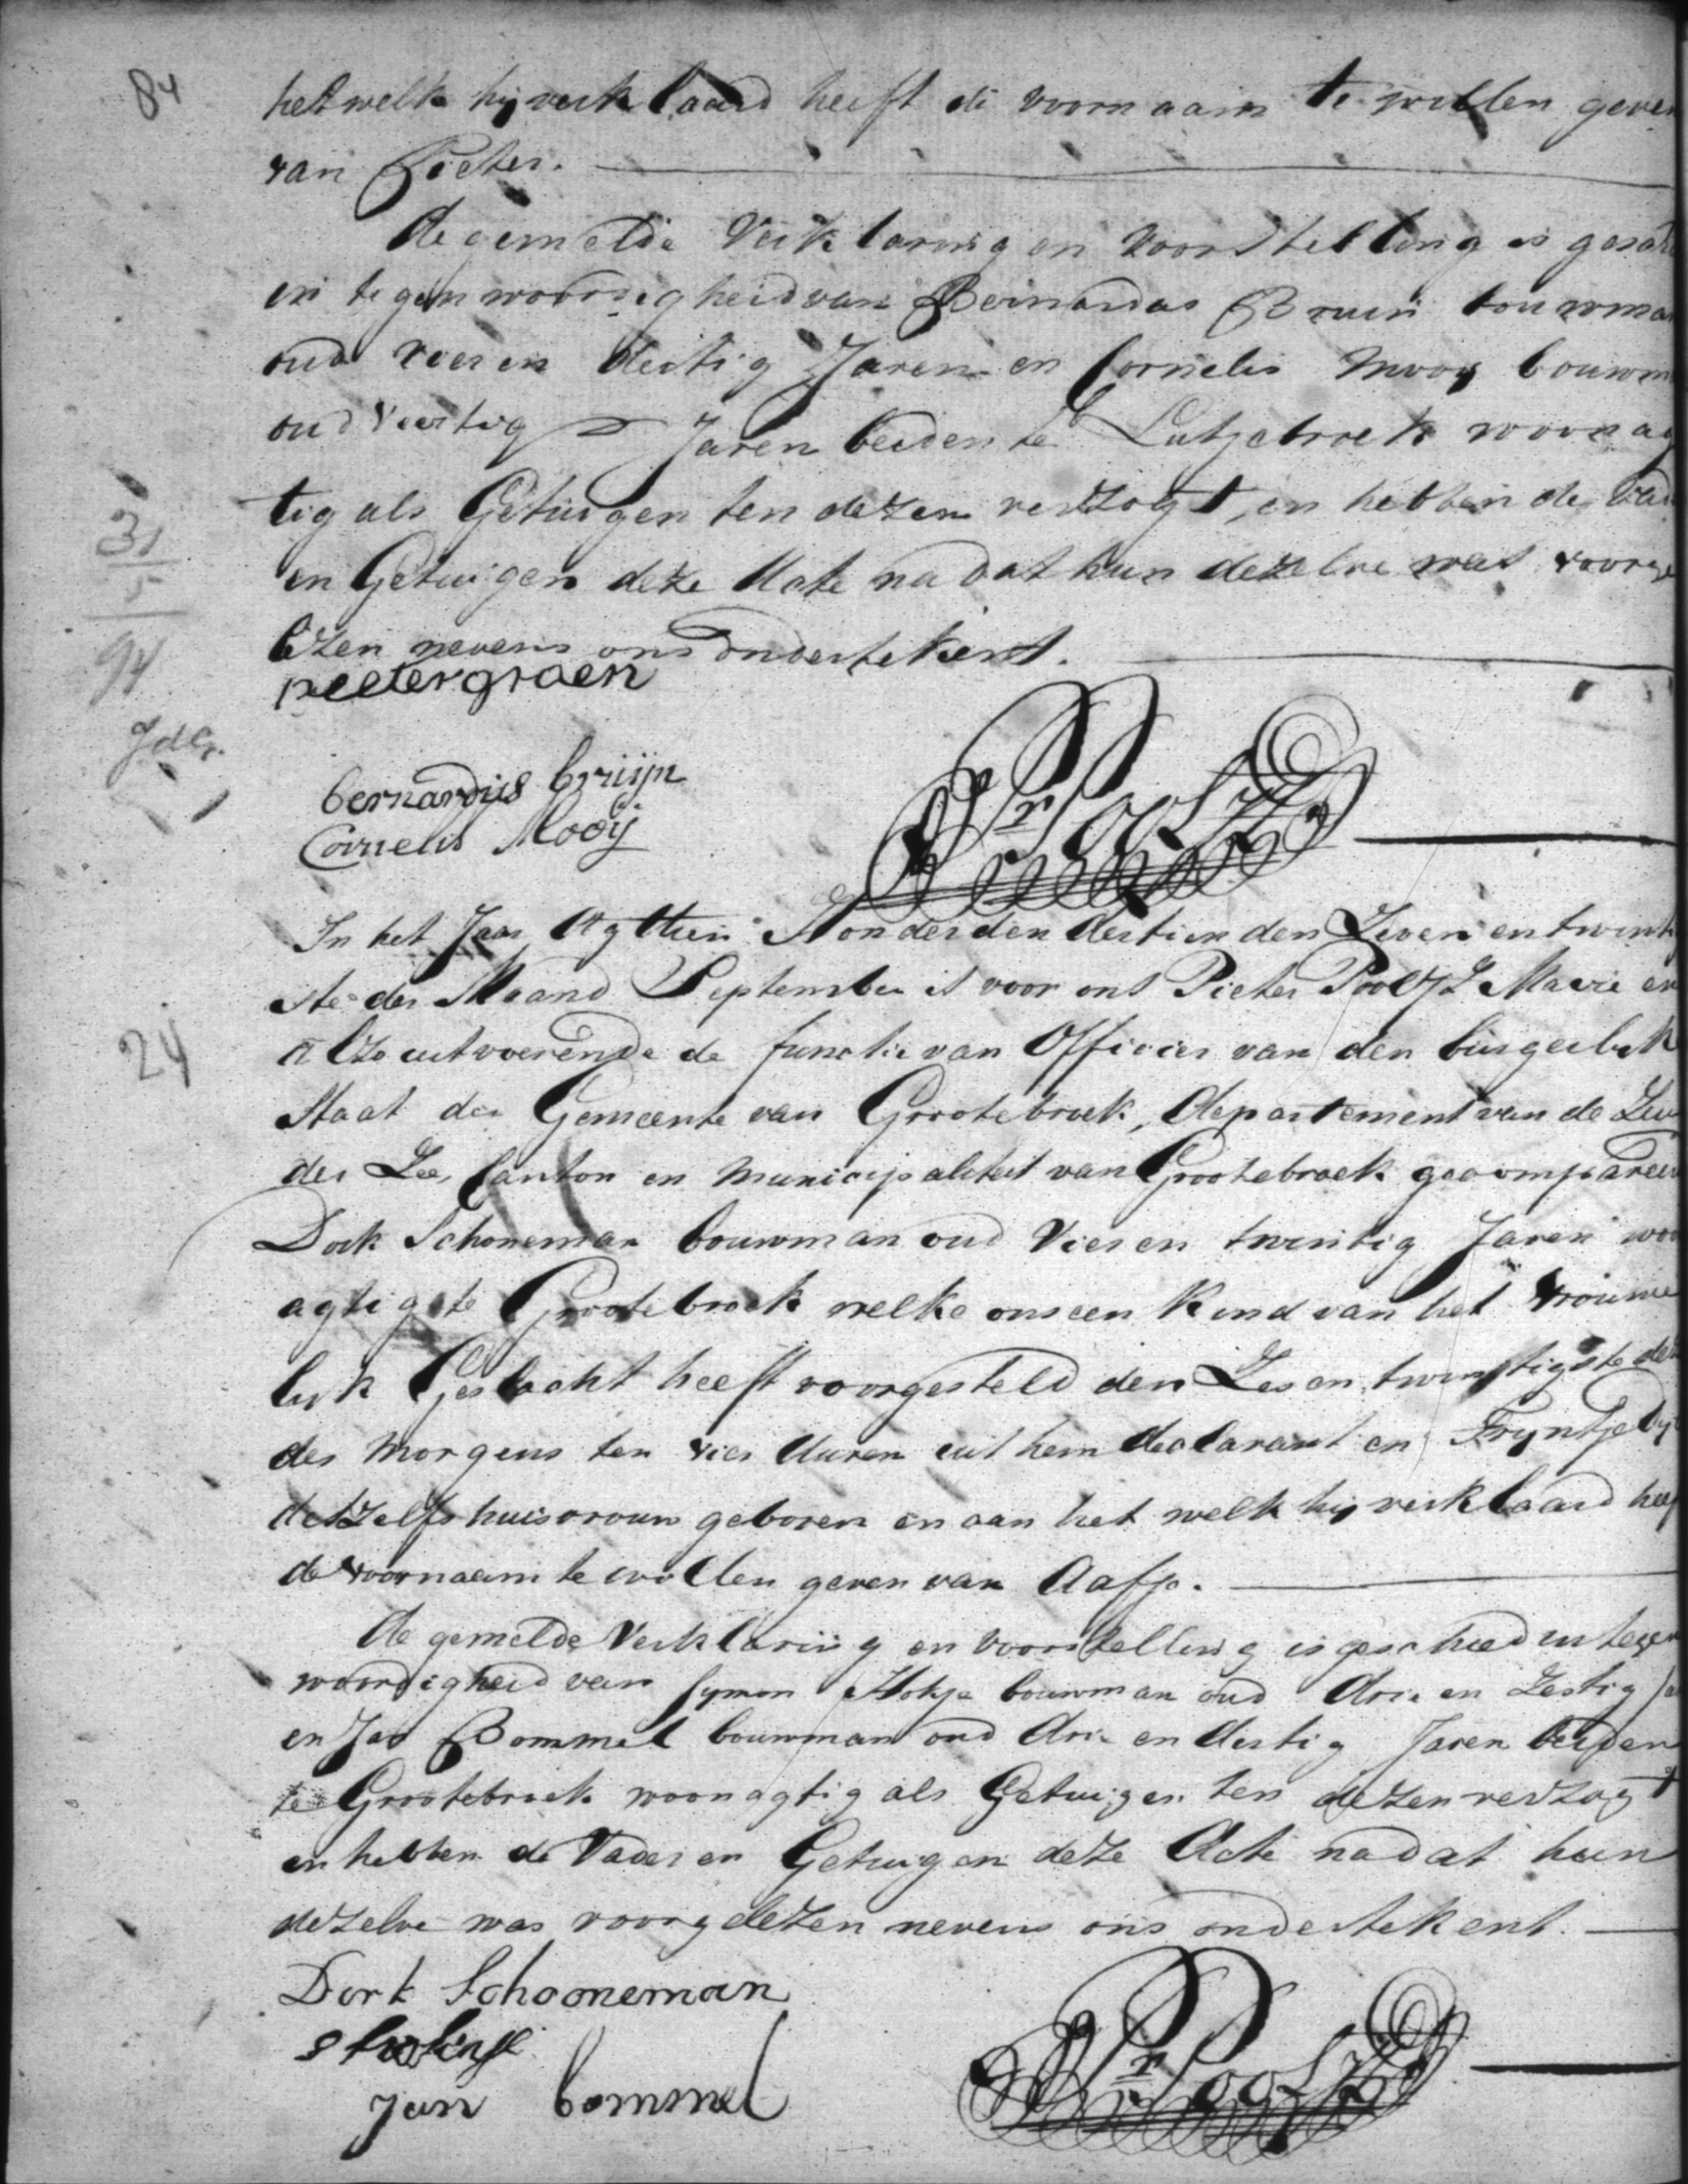 84
hetwelk hij verklaard heeft de voornaam te willen geven
van Pieter.
de gemelde Verklaring en voorstelling is geschi
in tegenwoordigheid van Bernardus Bruin bouwman
oud vier en dertig Jaren en Cornelis Mooy bouwm
oud Veertig Jaren beiden te Lutjebroek woonag
tig als Getuigen ten dezen verzogt, en hebben de vad
en Getuigen deze Acte na dat hun dezelve was voorge
lezen nevens ons ondertekent.
pieter groen
bernardijs brüijn
Cornelis Mooij
Pr Pool JZ
In het Jaar Agttien Honderd en dertien den Zeven en twinti
ste der Maand September is voor ons Pieter Pool JZ Maire en
alzo uitvoerende de functie van Officier van den burgerlyk
24
Staat der Gemeente van Grootebroek, departement van de Zui
der Zee, Canton en Municipaliteit van Grootebroek gecompareer
Dirk Schoneman bouwman oud Vier en twintig Jaren woo
agtig te Grootebroek welke ons een Kind van het vrouwe
lyk Geslacht heeft voorgesteld den Zes en twintigste de
des morgens ten vier uuren uit hem declarant en Tryntje
deszelfs huisvrouw geboren en aan het welk hij verklaard heef
de voornaam te willen geven van Aafje.
de gemelde Verklaring en voorstelling is geschied in tegen
woordigheid van Symon Hokje bouwman oud drie en Zestig Ja
en Jan Bommel bouwman oud drie en dertig Jaren beiden
te Grootebroek woonagtig als Getuigen ten dezen verzogt
en hebben de Vader en Getuigen deze Acte na dat hun
dezelve was voorgelezen nevens ons ondertekent.
Dirk Schooneman
Jan bommel
Pr Pool JZ
31
5
94